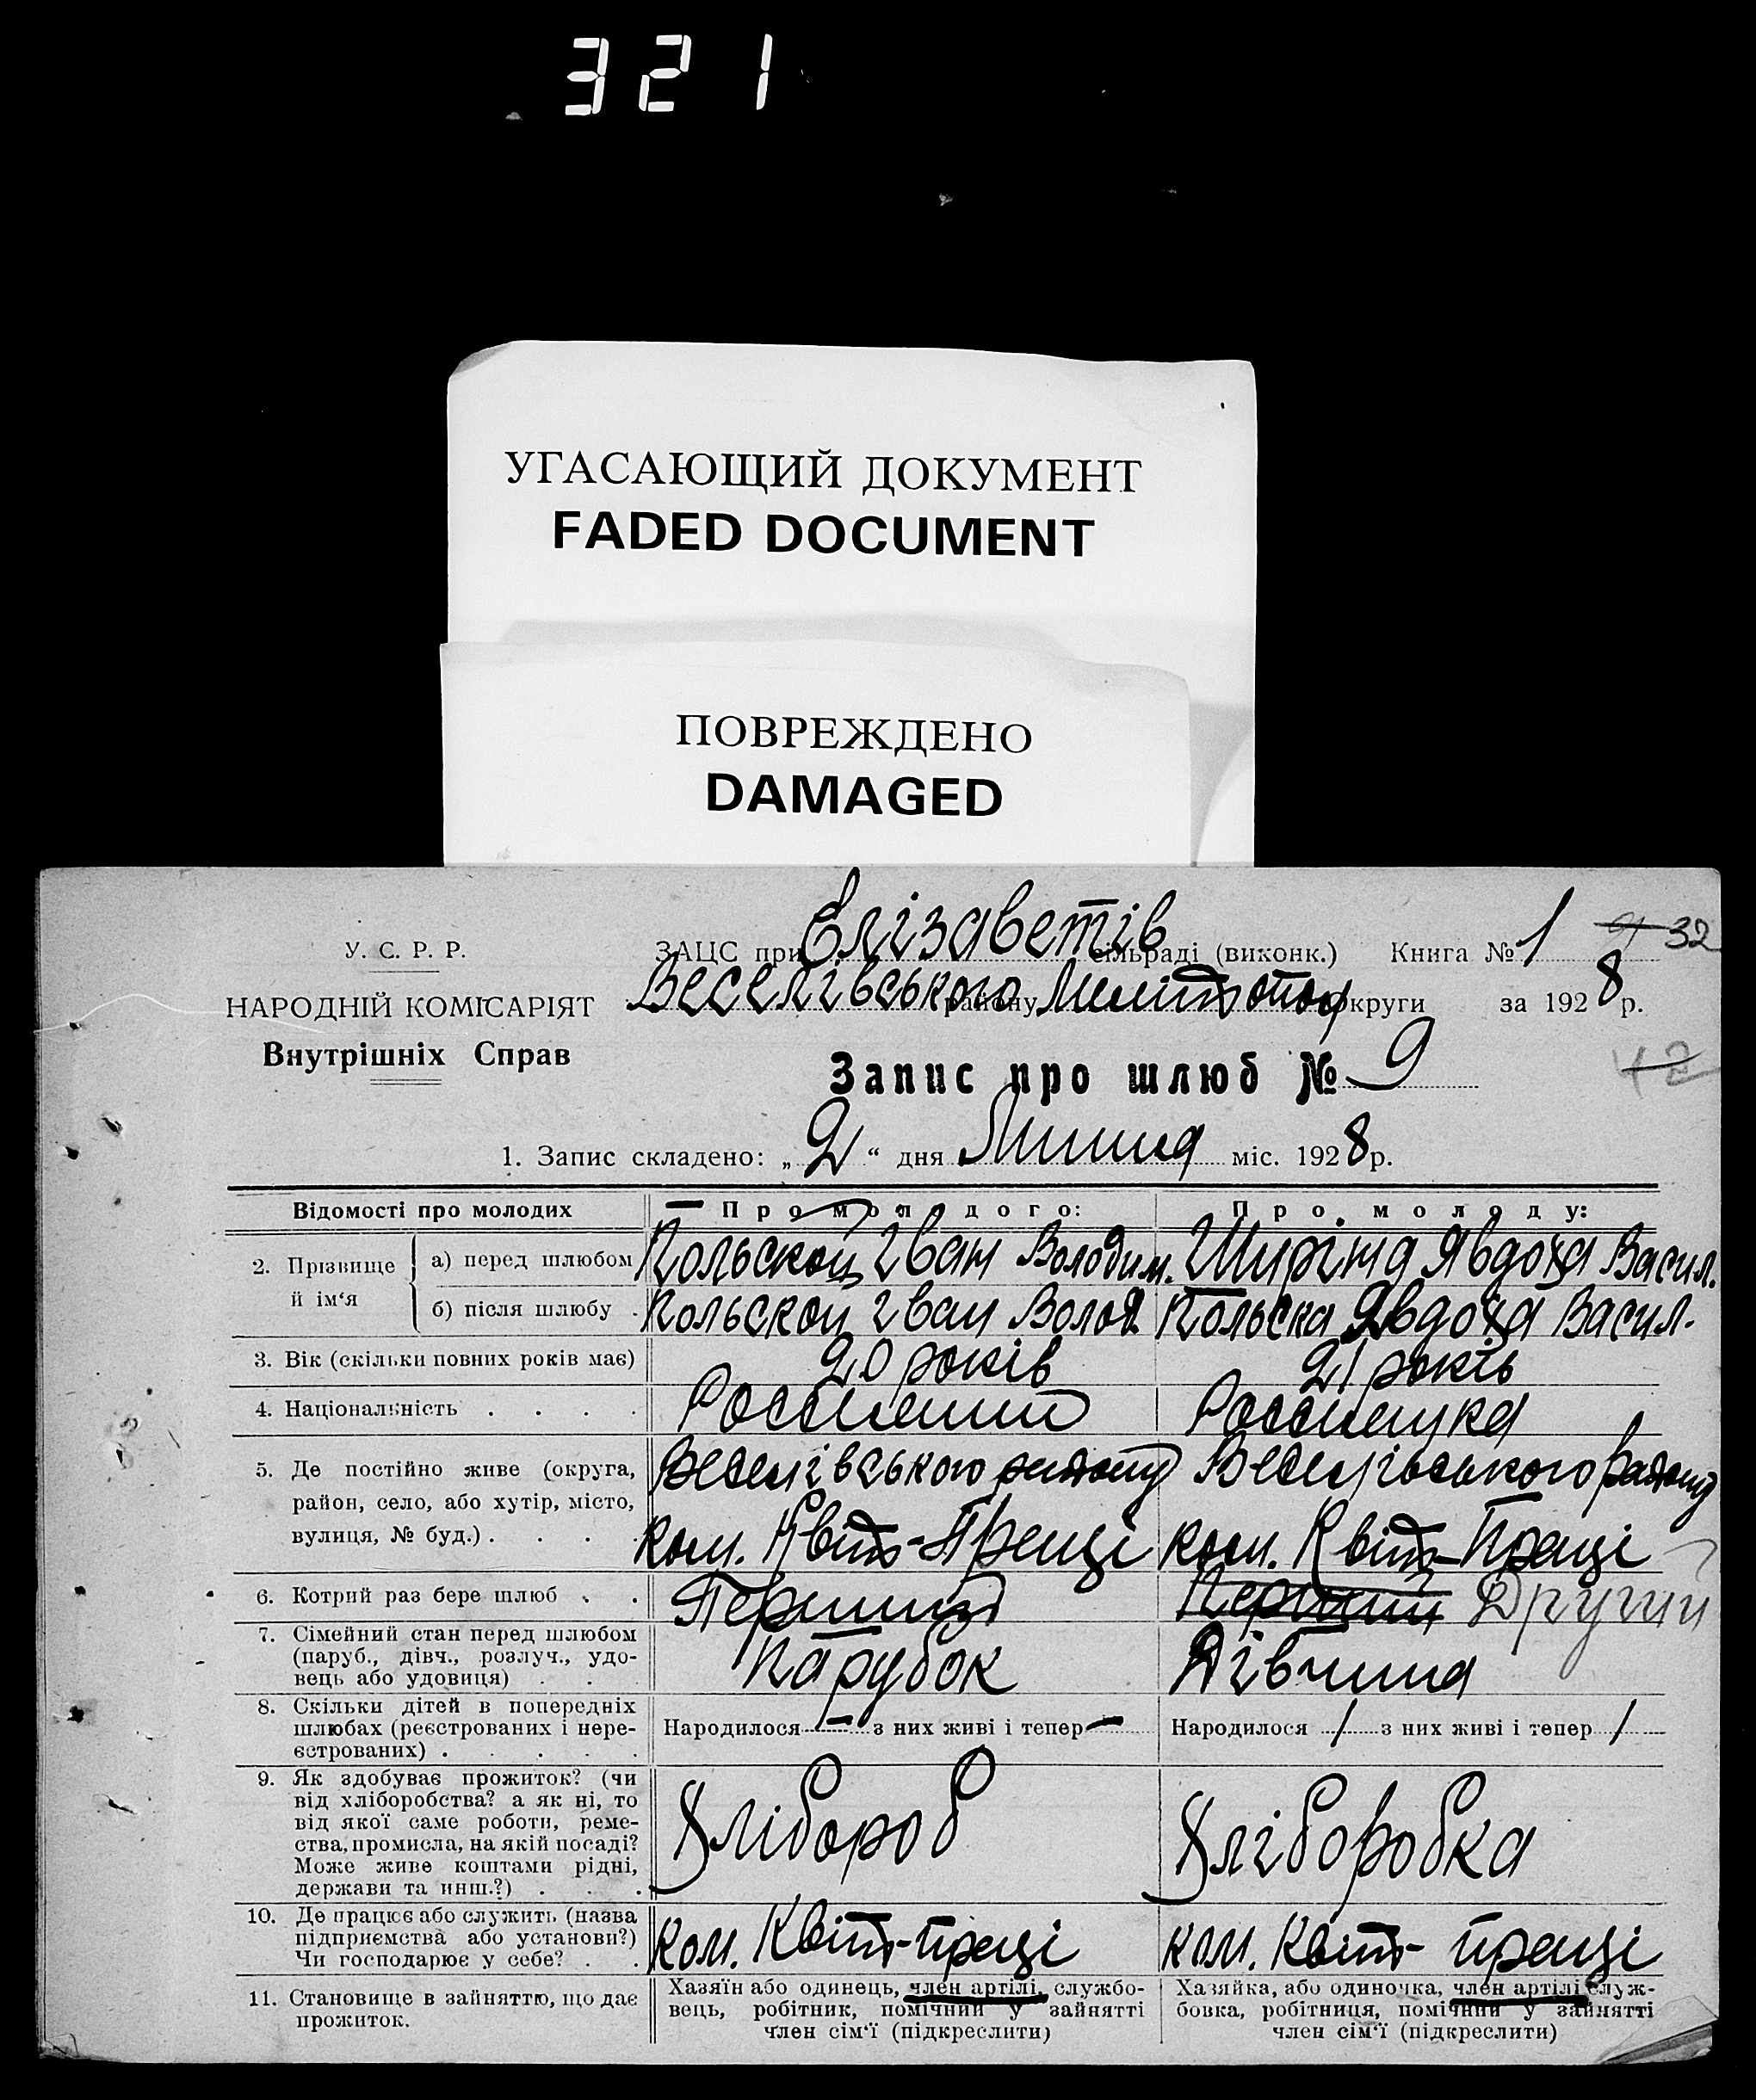 321
УГАСАЮЩИЙ ДОКУМЕНТ
FADED DOCUMENT
ПОВРЕЖДЕНО
DAMAGED
У. С. Р. Р.
НАРОДНІЙ КОМІСАРІЯТ
Внутрішніх Справ
ЗАЦС при Єлізаветів сільраді (виконк.) Книга № 1 32
Веселівського району Мелітопол округи за 1928 р.
42
Запис про шлюб № 9
1. Запис складено: „2“ дня Липня міс. 1928 р.
Відомості про молодих Про молодого: Про молоду:
2. Прізвище й ім‘я
а) перед шлюбом Кольской Іван Володим. Ширіна Явдоха Васил.
б) після шлюбу Кольской Іван Волод Кольска Явдоха Васил.
3. Вік (скільки повних років має) 20 років 21 років
4. Національність
5. Де постійно живе (округа, район, село, або хутір, місто, вулиця, № буд.)
Веселівського району Веселівського району
ком. Квіт-Праці ком. Квіт-Праці
6. Котрий раз бере шлюб Перший Перший Другий
7. Сімейний стан перед шлюбом (паруб., дівч., розлуч., удовець або удовиця) Парубок Дівчина
8. Скільки дітей в попередніх шлюбах (реєстрованих і нереєстрованих)
Народилося — з них живі і тепер — Народилося / з них живі і тепер /
9. Як здобуває прожиток? (чи від хліборобства? а як ні, то від якої саме роботи, ремества, промисла, на якій посаді? Може живе коштами рідні, держави та инш.?)
Хлібороб Хліборобка
10. Де працює або служить (назва підприємства або установи?) Чи господарює у себе?
ком. Квіт-праці ком. Квіт-праці
11. Становище в зайняттю, що дає прожиток.
Хазяїн або одинець, член артілі, службовець, робітник, помічний у зайнятті член сім‘ї (підкреслити)
Хазяйка, або одиночка, член артілі службовка, робітниця, помічний у зайнятті член сім‘ї (підкреслити)